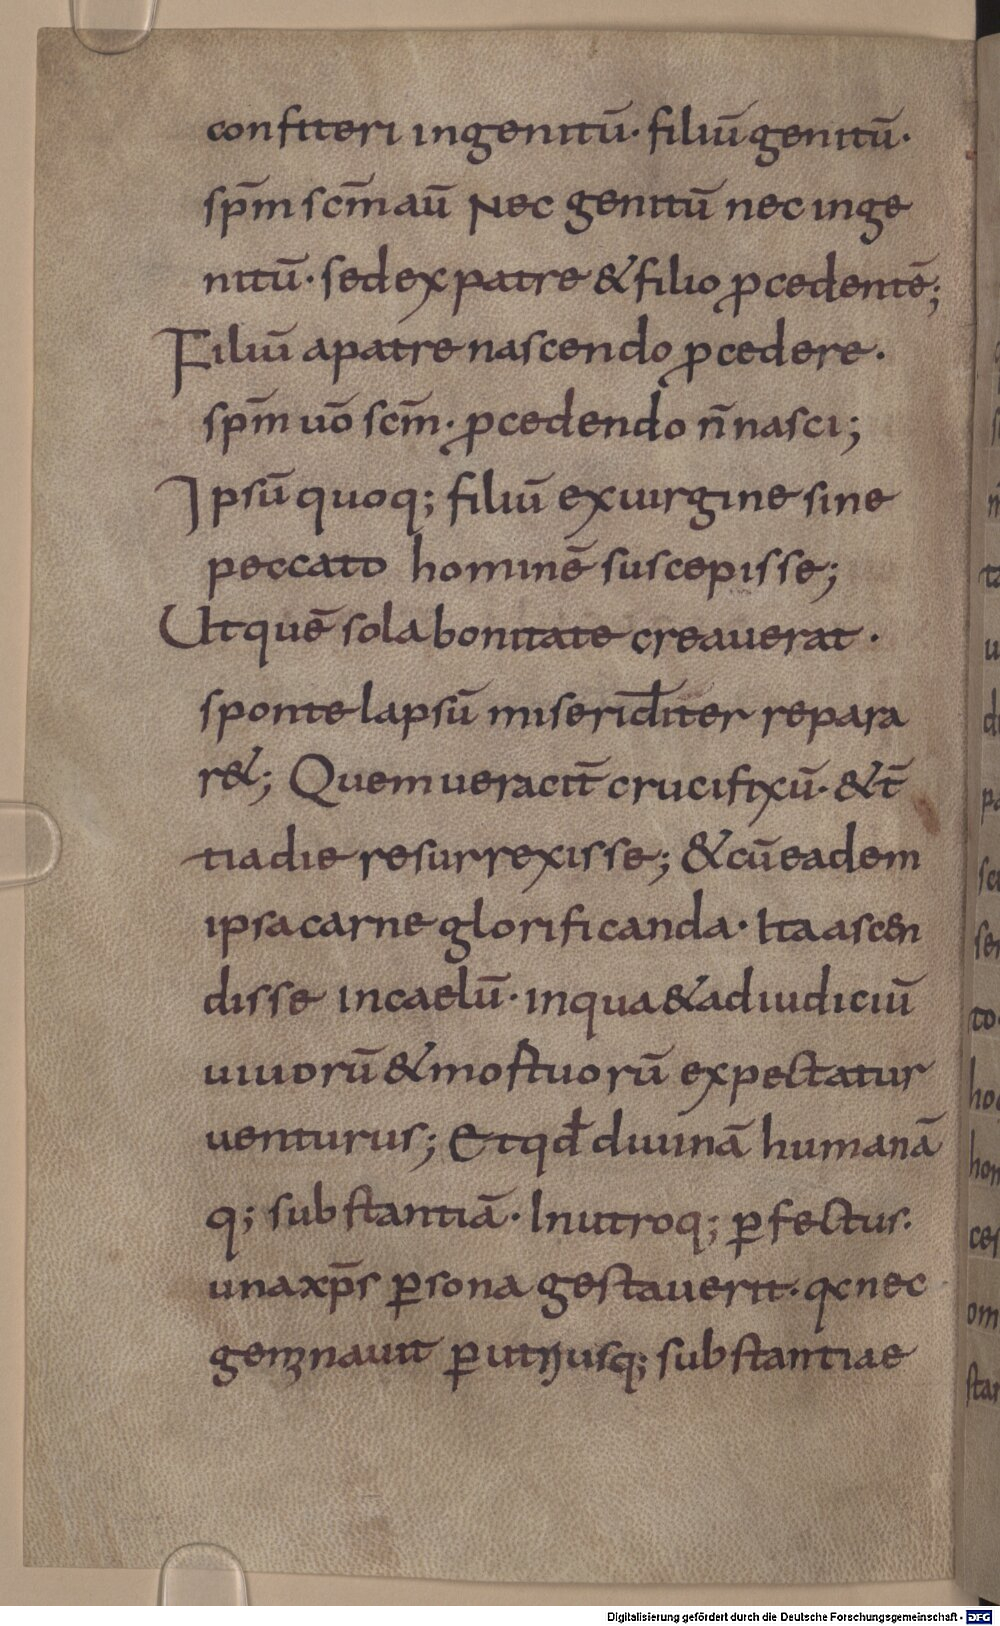 confiteri ingenitū· filiū genitū·
sp̄m sc̄m aū Nec genitū nec inge
nitū· sed ex patre & filio ꝓcedentē;
Filiū a patre nascendo ꝓcedere·
sp̄m uō sc̄m· ꝓcedendo n̄ nasci;
Ipsū quoq; filiū ex uirgine sine
peccato hominē suscepisse;
Ut quē sola bonitate creauerat·
sponte lapsū misericorđiter repara
r&; Quem ueracit̄ crucifixū· & t̄
tia die resurrexisse; & cū eadem
ipsa carne glorificanda· Ita ascen
disse in caelū· in qua & ad iudiciū
uiuorū & mortuorū expectatur
uenturus; Et qđ diuinā humanā
q; substantiā· In utroq; ꝑfectus·
una xp̄s ꝑsona gestauerit· qc nec
geminauit ꝑ utriusq; substantiae
Digitalisierung gefördert durch die Deutsche Forschungsgemeinschaft - DFG